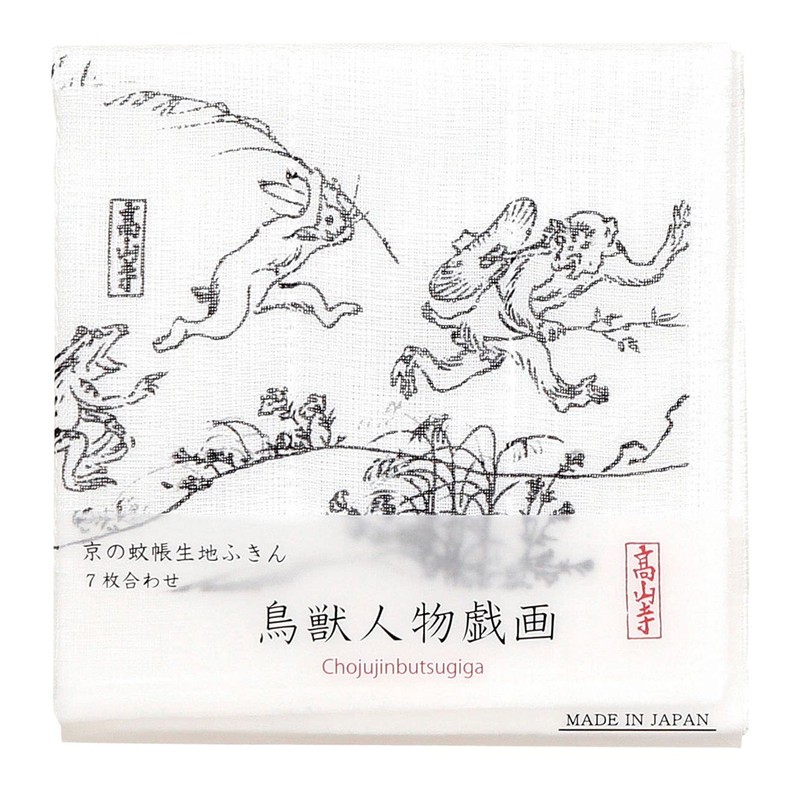 高山寺
京の蚊帳生地ふきん
7枚合わせ
高山寺
鳥獣人物戯画
Chojujinbutsugiga
MADE IN JAPAN